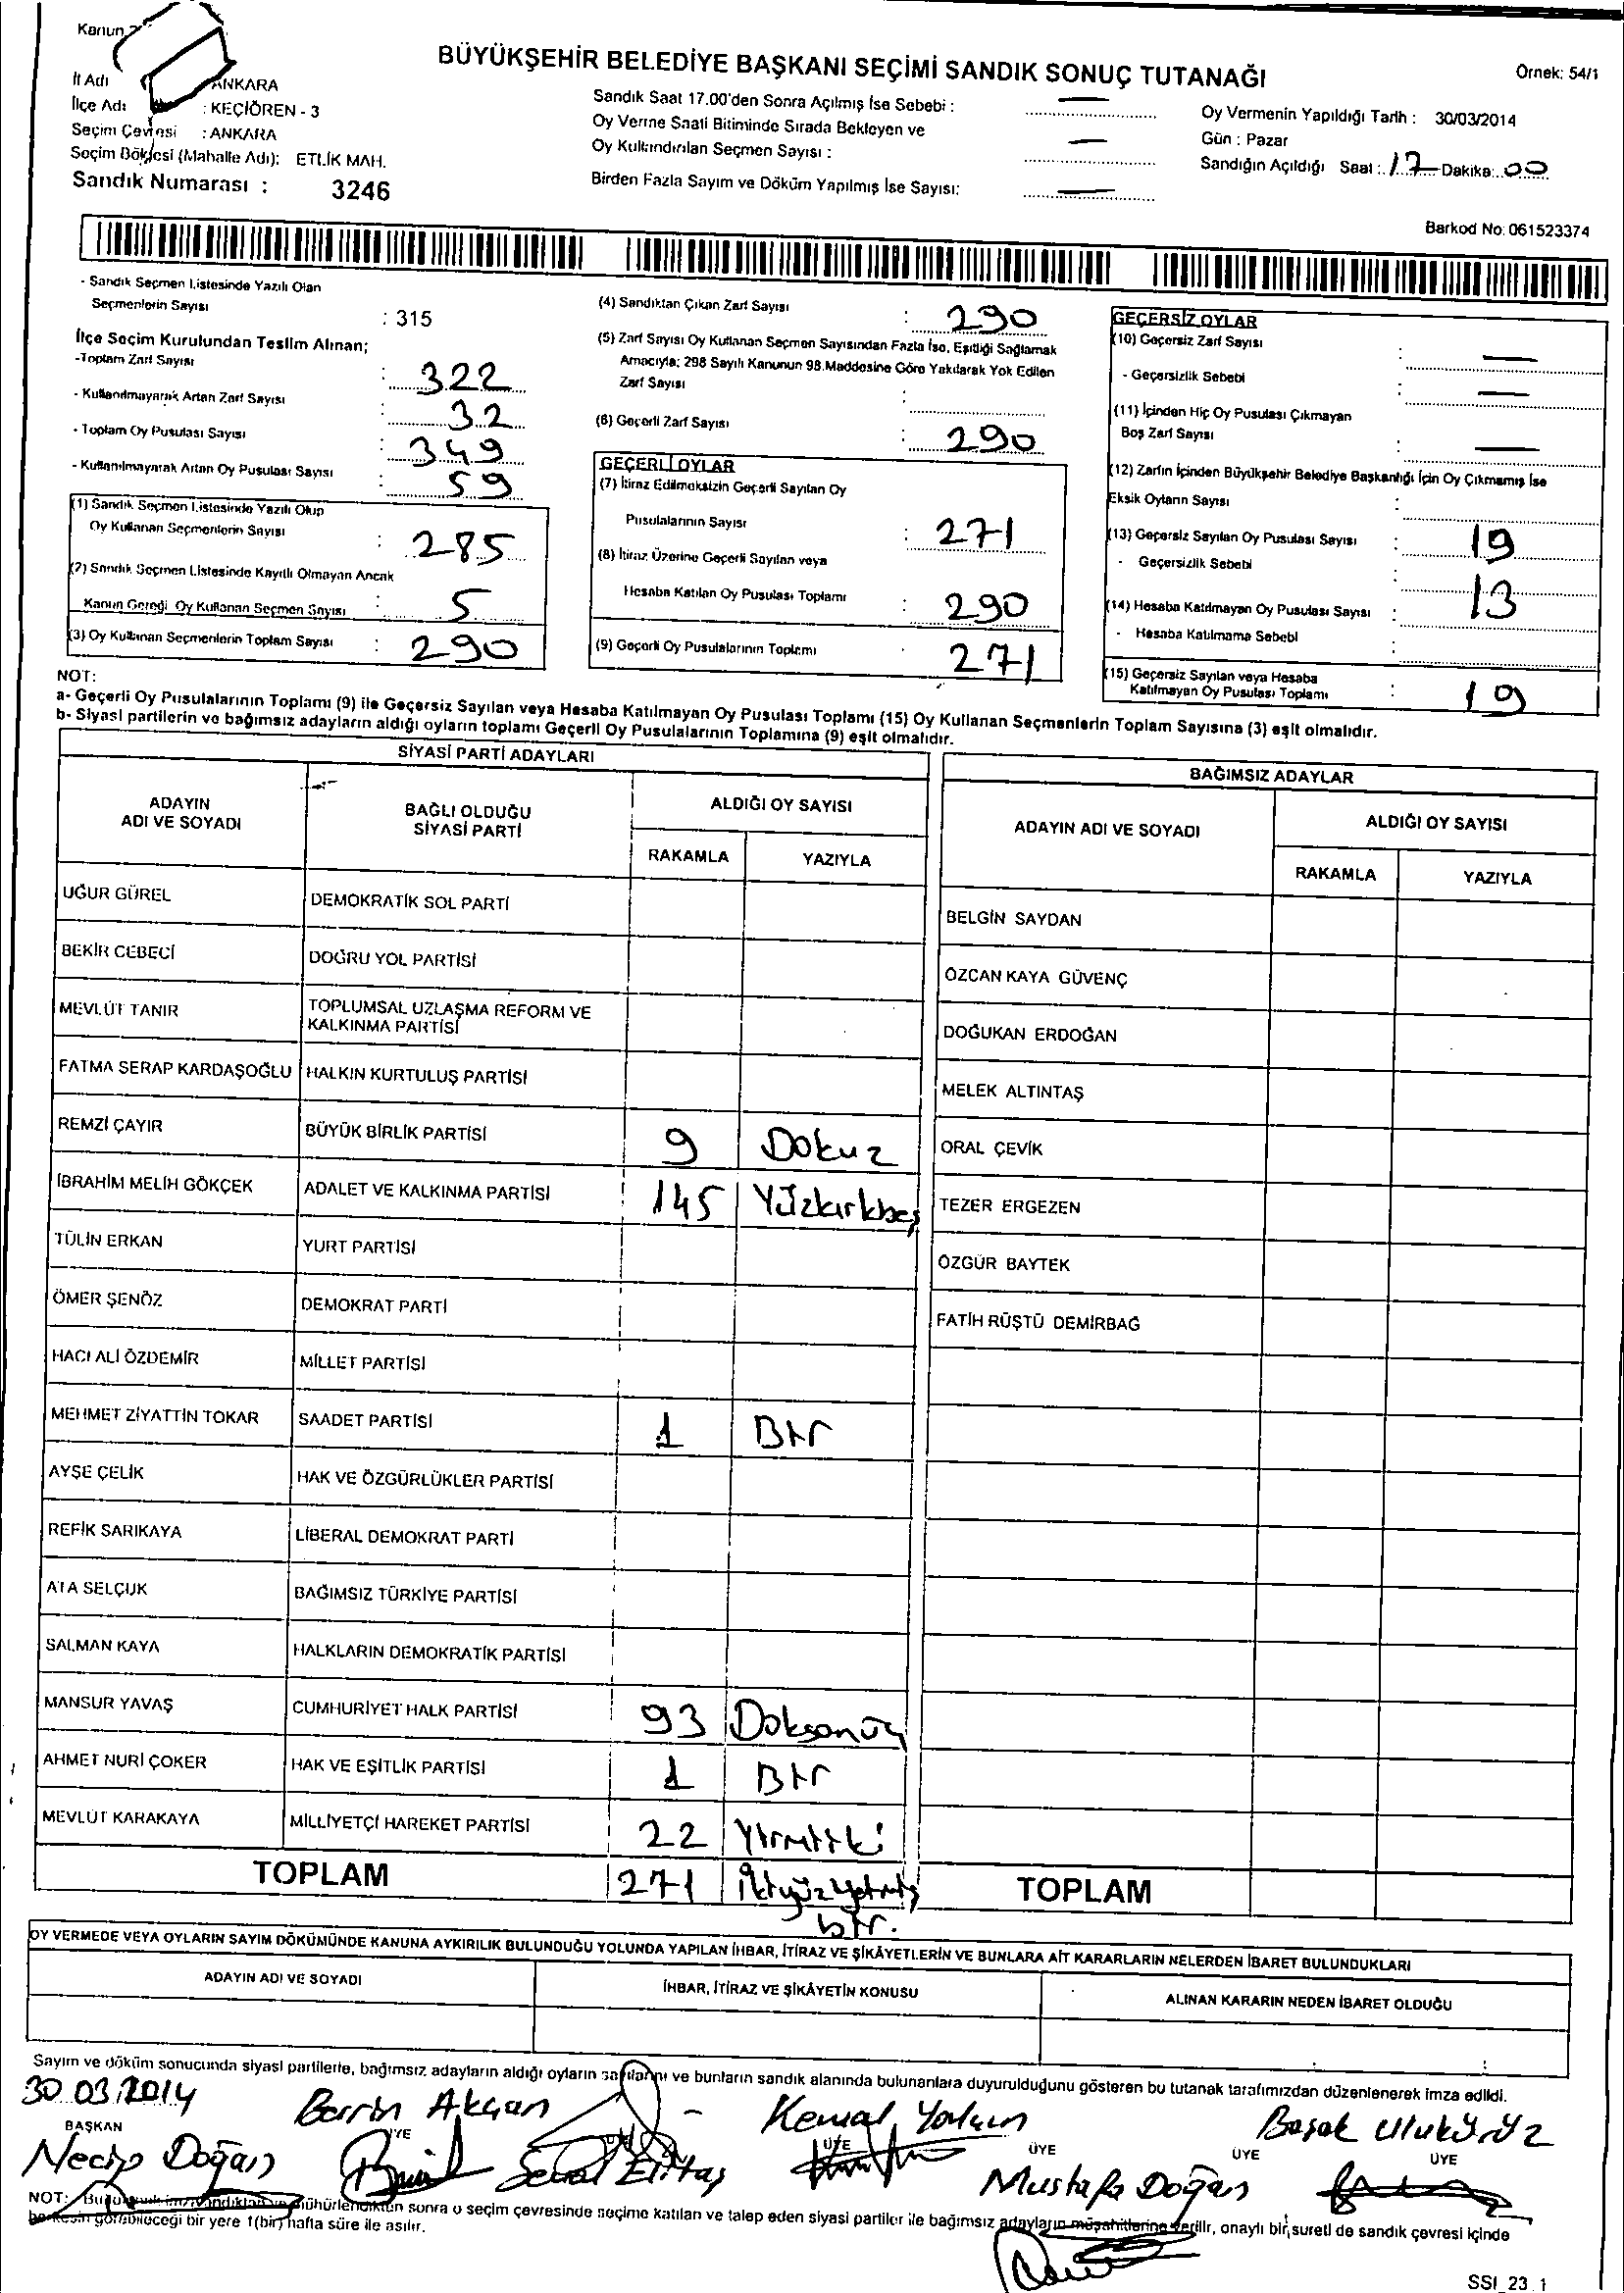 Kanun
BÜYÜKŞEHİR BELEDİYE BAŞKANI SEÇİMİ SANDIK SONUÇ TUTANAĞI
Örnek: 54/1
İl Adı ANKARA
İlçe Adı : KEÇİÖREN - 3
Seçim Çevresi : ANKARA
Seçim Bölgesi (Mahalle Adı): ETLİK MAH.
Sandık Numarası : 3246
Sandık Saat 17.00'den Sonra Açılmış İse Sebebi : —
Oy Verme Saati Bitiminde Sırada Bekleyen ve
Oy Kullandırılan Seçmen Sayısı : —
Birden Fazla Sayım ve Döküm Yapılmış İse Sayısı: —
Oy Vermenin Yapıldığı Tarih : 30/03/2014
Gün : Pazar
Sandığın Açıldığı Saat : 17 Dakika: 00
Barkod No: 061523374
- Sandık Seçmen Listesinde Yazılı Olan
Seçmenlerin Sayısı : 315
İlçe Seçim Kurulundan Teslim Alınan;
-Toplam Zarf Sayısı : 322
- Kullanılmayarak Artan Zarf Sayısı : 32
- Toplam Oy Pusulası Sayısı : 349
- Kullanılmayarak Artan Oy Pusulası Sayısı : 59
(1) Sandık Seçmen Listesinde Yazılı Olup
Oy Kullanan Seçmenlerin Sayısı : 285
(2) Sandık Seçmen Listesinde Kayıtlı Olmayan Ancak
Kanun Gereği Oy Kullanan Seçmen Sayısı : 5
(3) Oy Kullanan Seçmenlerin Toplam Sayısı : 290
(4) Sandıktan Çıkan Zarf Sayısı : 290
(5) Zarf Sayısı Oy Kullanan Seçmen Sayısından Fazla İse, Eşitliği Sağlamak
Amacıyla; 298 Sayılı Kanunun 98.Maddesine Göre Yakılarak Yok Edilen
Zarf Sayısı :
(6) Geçerli Zarf Sayısı : 290
GEÇERLİ OYLAR
(7) İtiraz Edilmeksizin Geçerli Sayılan Oy
Pusulalarının Sayısı : 271
(8) İtiraz Üzerine Geçerli Sayılan veya
Hesaba Katılan Oy Pusulası Toplamı : 290
(9) Geçerli Oy Pusulalarının Toplamı : 271
GEÇERSİZ OYLAR
(10) Geçersiz Zarf Sayısı : —
- Geçersizlik Sebebi : —
(11) İçinden Hiç Oy Pusulası Çıkmayan
Boş Zarf Sayısı : —
(12) Zarfın İçinden Büyükşehir Belediye Başkanlığı İçin Oy Çıkmamış İse
Eksik Oyların Sayısı :
(13) Geçersiz Sayılan Oy Pusulası Sayısı : 19
- Geçersizlik Sebebi :
(14) Hesaba Katılmayan Oy Pusulası Sayısı : 13
- Hesaba Katılmama Sebebi :
(15) Geçersiz Sayılan veya Hesaba
Katılmayan Oy Pusulası Toplamı : 19
NOT:
a- Geçerli Oy Pusulalarının Toplamı (9) ile Geçersiz Sayılan veya Hesaba Katılmayan Oy Pusulası Toplamı (15) Oy Kullanan Seçmenlerin Toplam Sayısına (3) eşit olmalıdır.
b- Siyasi partilerin ve bağımsız adayların aldığı oyların toplamı Geçerli Oy Pusulalarının Toplamına (9) eşit olmalıdır.
SİYASİ PARTİ ADAYLARI
ADAYIN ADI VE SOYADI
BAĞLI OLDUĞU SİYASİ PARTİ
ALDIĞI OY SAYISI
RAKAMLA YAZIYLA
UĞUR GÜREL DEMOKRATİK SOL PARTİ
BEKİR CEBECİ DOĞRU YOL PARTİSİ
MEVLÜT TANIR TOPLUMSAL UZLAŞMA REFORM VE
KALKINMA PARTİSİ
FATMA SERAP KARDAŞOĞLU HALKIN KURTULUŞ PARTİSİ
REMZİ ÇAYIR BÜYÜK BİRLİK PARTİSİ 9 Dokuz
İBRAHİM MELİH GÖKÇEK ADALET VE KALKINMA PARTİSİ 145 Yüzkırkbeş
TÜLİN ERKAN YURT PARTİSİ
ÖMER ŞENÖZ DEMOKRAT PARTİ
HACI ALİ ÖZDEMİR MİLLET PARTİSİ
MEHMET ZİYATTİN TOKAR SAADET PARTİSİ 1 Bir
AYŞE ÇELİK HAK VE ÖZGÜRLÜKLER PARTİSİ
REFİK SARIKAYA LİBERAL DEMOKRAT PARTİ
ATA SELÇUK BAĞIMSIZ TÜRKİYE PARTİSİ
SALMAN KAYA HALKLARIN DEMOKRATİK PARTİSİ
MANSUR YAVAŞ CUMHURİYET HALK PARTİSİ 93 Doksanüç
AHMET NURİ ÇOKER HAK VE EŞİTLİK PARTİSİ 1 Bir
MEVLÜT KARAKAYA MİLLİYETÇİ HAREKET PARTİSİ 22 Yirmiiki
TOPLAM 271 İkiyüzyetmiş
bir.
BAĞIMSIZ ADAYLAR
ADAYIN ADI VE SOYADI
ALDIĞI OY SAYISI
RAKAMLA YAZIYLA
BELGİN SAYDAN
ÖZCAN KAYA GÜVENÇ
DOĞUKAN ERDOĞAN
MELEK ALTINTAŞ
ORAL ÇEVİK
TEZER ERGEZEN
ÖZGÜR BAYTEK
FATİH RÜŞTÜ DEMİRBAĞ
TOPLAM
OY VERMEDE VEYA OYLARIN SAYIM DÖKÜMÜNDE KANUNA AYKIRILIK BULUNDUĞU YOLUNDA YAPILAN İHBAR, İTİRAZ VE ŞİKÂYETLERİN VE BUNLARA AİT KARARLARIN NELERDEN İBARET BULUNDUKLARI
ADAYIN ADI VE SOYADI İHBAR, İTİRAZ VE ŞİKÂYETİN KONUSU ALINAN KARARIN NEDEN İBARET OLDUĞU
Sayım ve döküm sonucunda siyasi partilerle, bağımsız adayların aldığı oyların sayılarını ve bunların sandık alanında bulunanlara duyurulduğunu gösteren bu tutanak tarafımızdan düzenlenerek imza edildi.
30.03.2014 Berrin Akçan Kemal Yalçın Başak Ulukürüz
BAŞKAN ÜYE ÜYE ÜYE ÜYE ÜYE
Necip Doğan Mustafa Doğan
NOT: mühürlendikten sonra o seçim çevresinde seçime katılan ve talep eden siyasi partiler ile bağımsız adayların müşahitlerine verilir, onaylı bir sureti de sandık çevresi içinde
herkesin görebileceği bir yere 1(bir) hafta süre ile asılır.
SSI_23_1